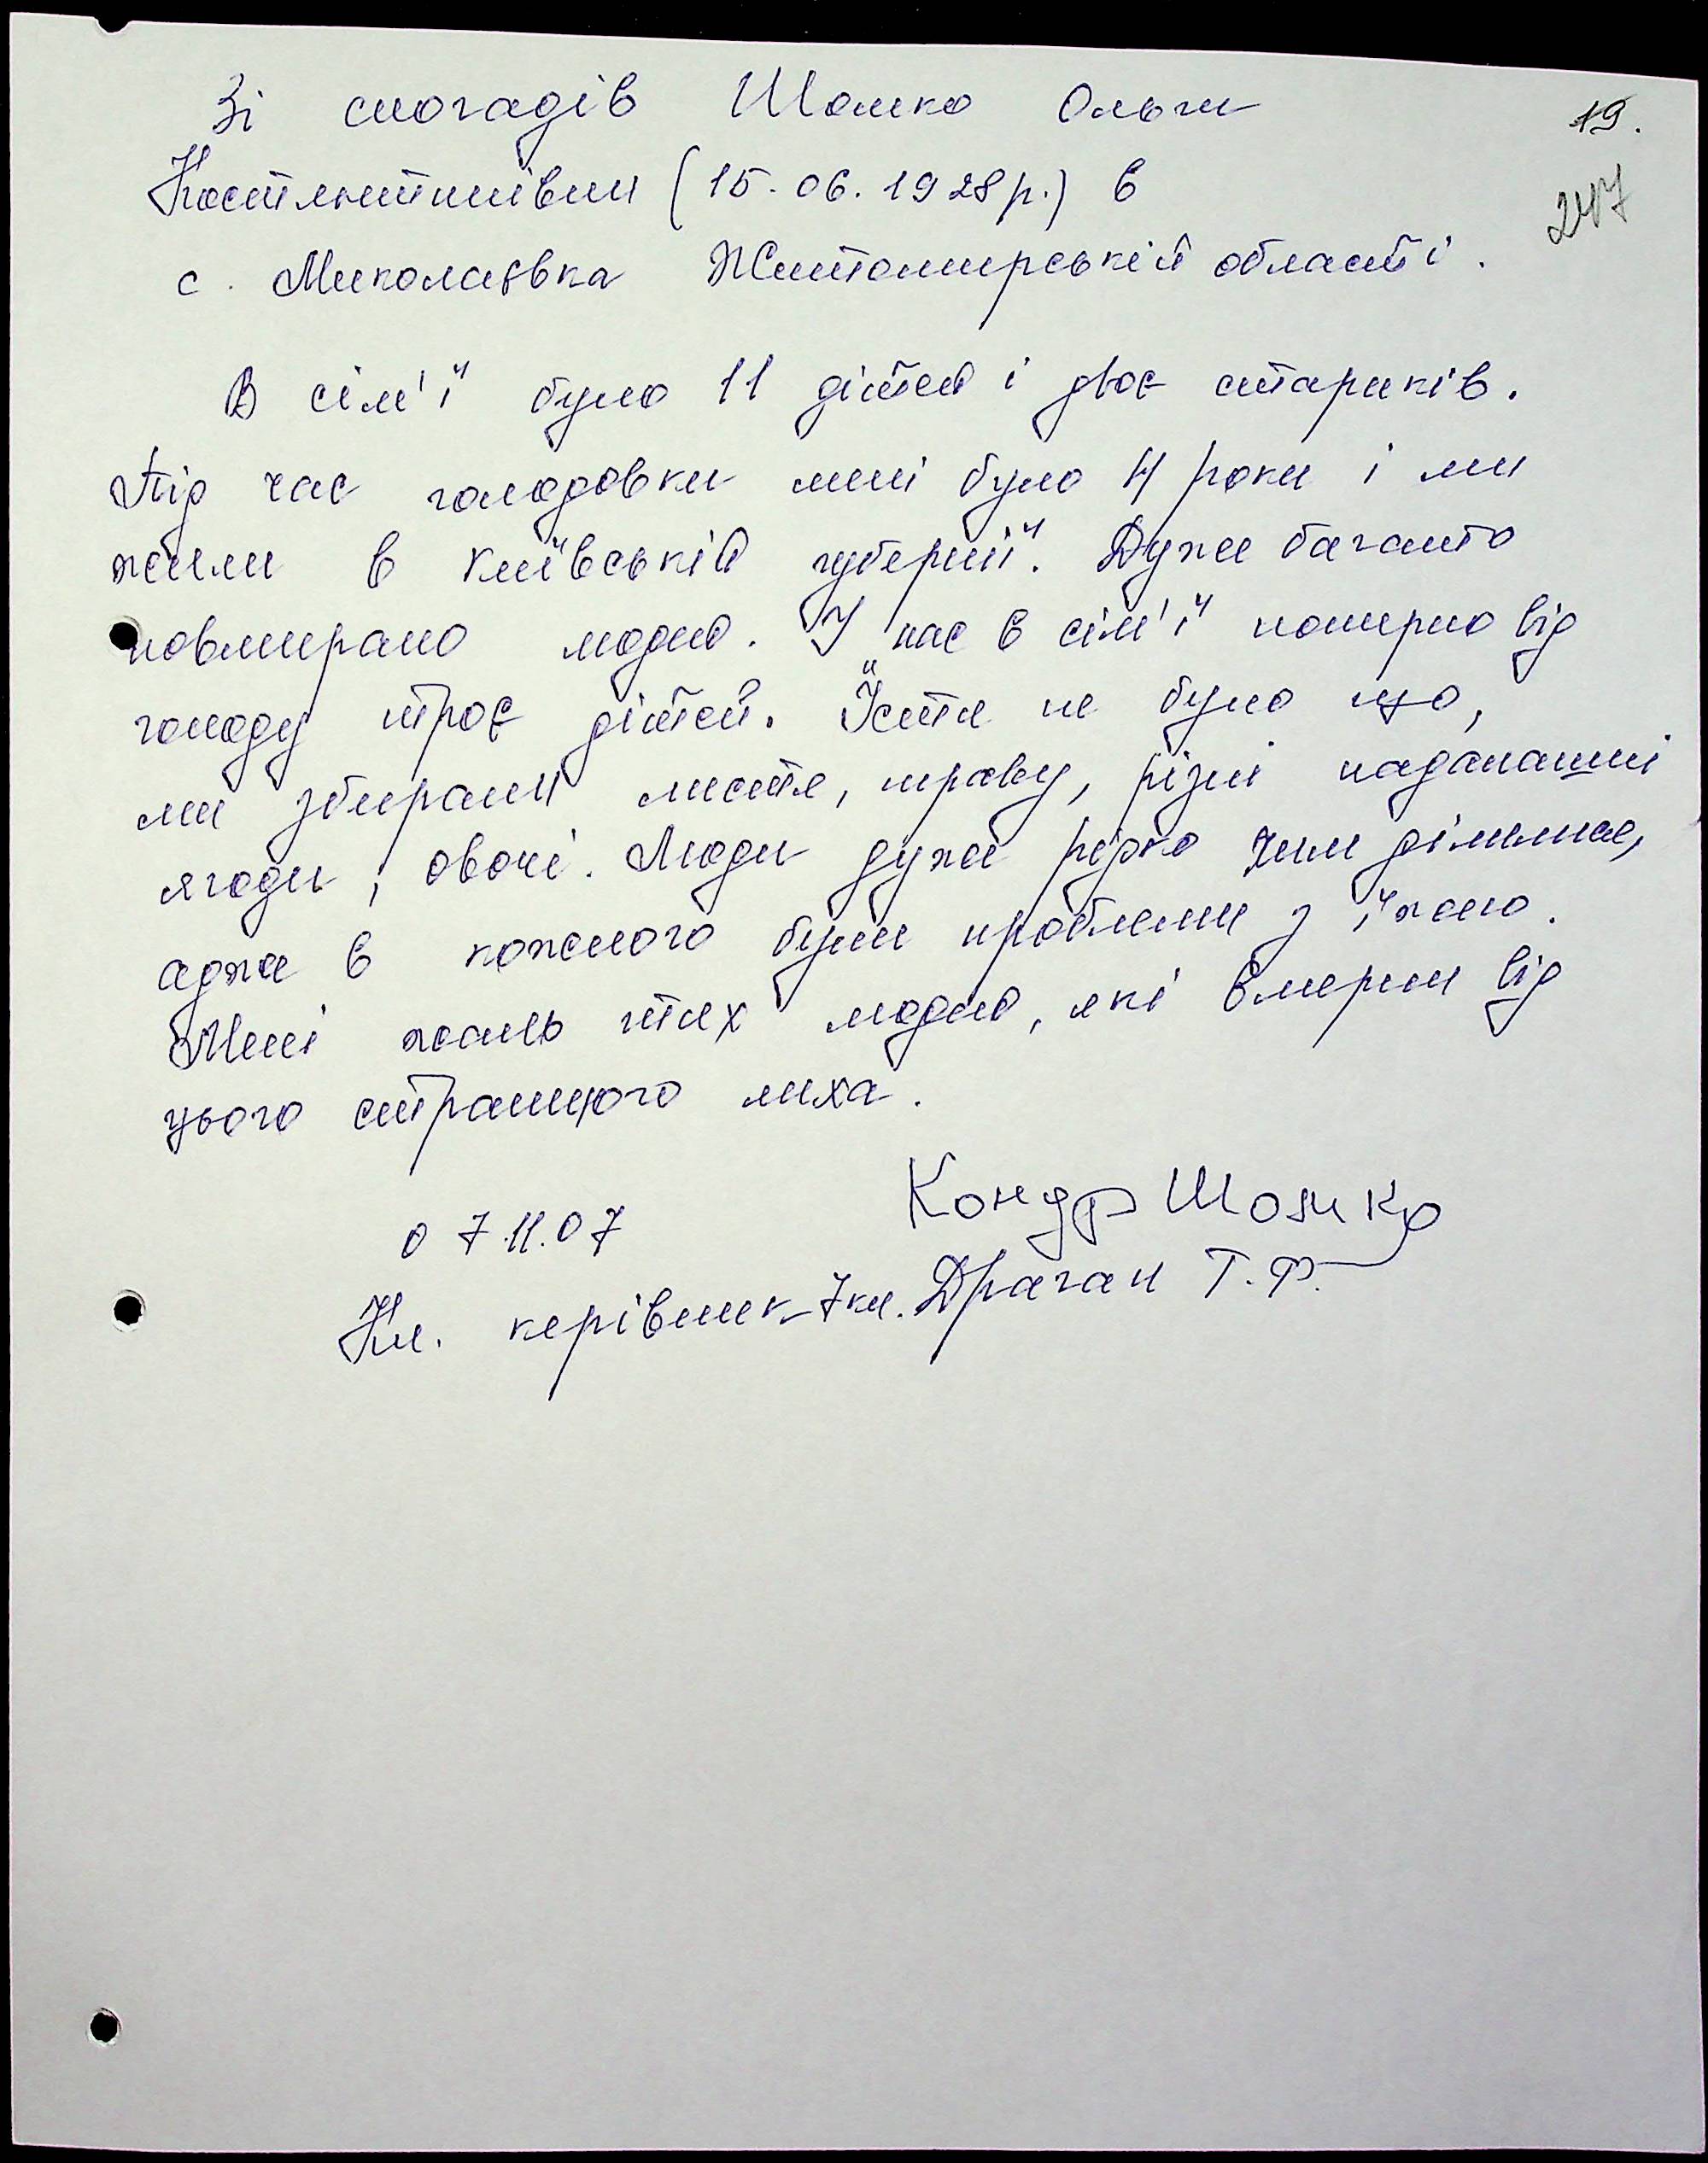 Зі спогадів Шомко Ольги
19.
Костянтинівни (15.06.1928 р.) в
247
с. Миколаївка Житомирській області.
В сім'ї було 11 дітей і двоє стариків.
Під час голодовки мені було 4 роки і ми
жили в Київській губернії. Дуже багато
повмирало людей. У нас в сім'ї померло від
голоду троє дітей. Їсти не було що,
ми збирали листя, траву, різні
ягоди, овочі. Люди дуже рідко чим ділились,
адже в кожного були проблеми з їжею.
Мені жаль тих людей, які вмерли від
цього страшного лиха.
07.11.07 Шомко
Кл. керівник 7кл. Драган Т.Ф.